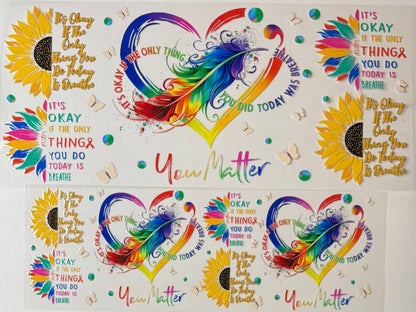 It's Okay
If The
Only
Thing You
Do Today
Is Breathe
IT'S OKAY IF THE ONLY THING
YOU DID TODAY WAS BREATHE
IT'S
OKAY
IF THE ONLY
THING
YOU DO
TODAY IS
BREATHE
IT'S
OKAY
IF THE ONLY
THING
YOU DO
TODAY IS
BREATHE
It's Okay
If The
Only
Thing You
Do Today
Is Breathe
You Matter
It's Okay
If The
Only
Thing You
Do Today
Is Breathe
IT'S OKAY IF THE ONLY THING
YOU DID TODAY WAS BREATHE
IT'S
OKAY
IF THE ONLY
THING
YOU DO
TODAY IS
BREATHE
You Matter
IT'S
OKAY
IF THE ONLY
THING
YOU DO
TODAY IS
BREATHE
IT'S OKAY IF THE ONLY THING
YOU DID TODAY WAS BREATHE
It's Okay
If The
Only
Thing You
Do Today
Is Breathe
You Matter